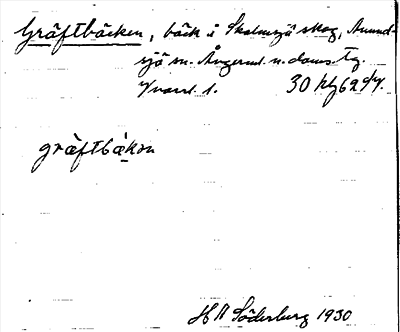 Gräftbäcken, bäck i Skalmsjö skog, Anund-
sjö sn. Ångerml. n. doms. tg.
Kvard 1. 30 kbg 62 d/y.
gräftbäkən
H A Söderberg 1930